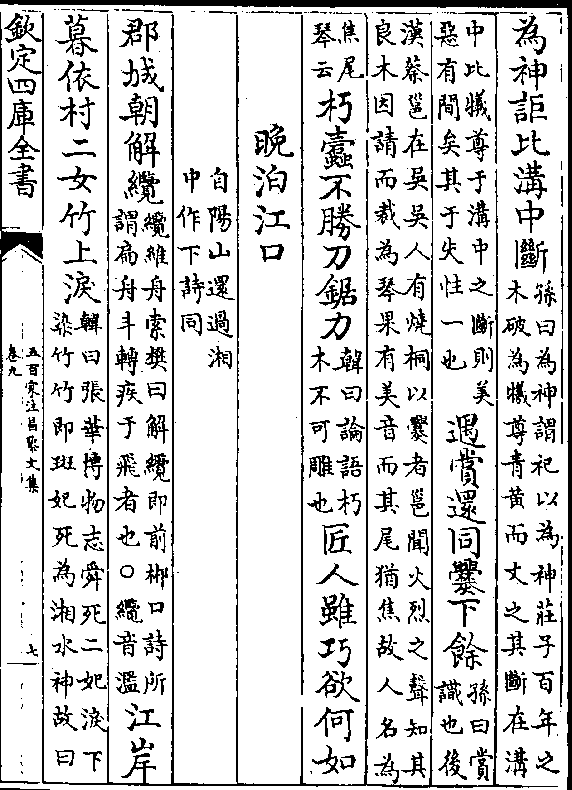 為神詎比溝中斷孫曰為神謂祀以為神莊子百年之木破為犧尊青黄而文之其斷在溝
中比犧尊于溝中之斷則美惡有間矣其于失性一也遇賞還同爨下餘孫曰賞識也後
漢蔡邕在吳吳人有燒桐以爨者邕聞火烈之聲知其良木因請而裁為琴果有美音而其尾猶焦故人名為
焦尾琴云朽蠹不勝刀鋸力韓曰論語朽木不可雕也匠人雖巧欲何如
晚泊江口
自陽山還過湘中作下詩同
郡城朝解纜纜維舟索樊曰解纜即前郴口詩所謂扁舟斗轉疾于飛者也○纜音濫江岸
暮依村二女竹上淚韓曰張華博物志舜死二妃淚下染竹竹即斑妃死為湘水神故曰
欽定四庫全書
五百家注昌黎文集
卷九
七